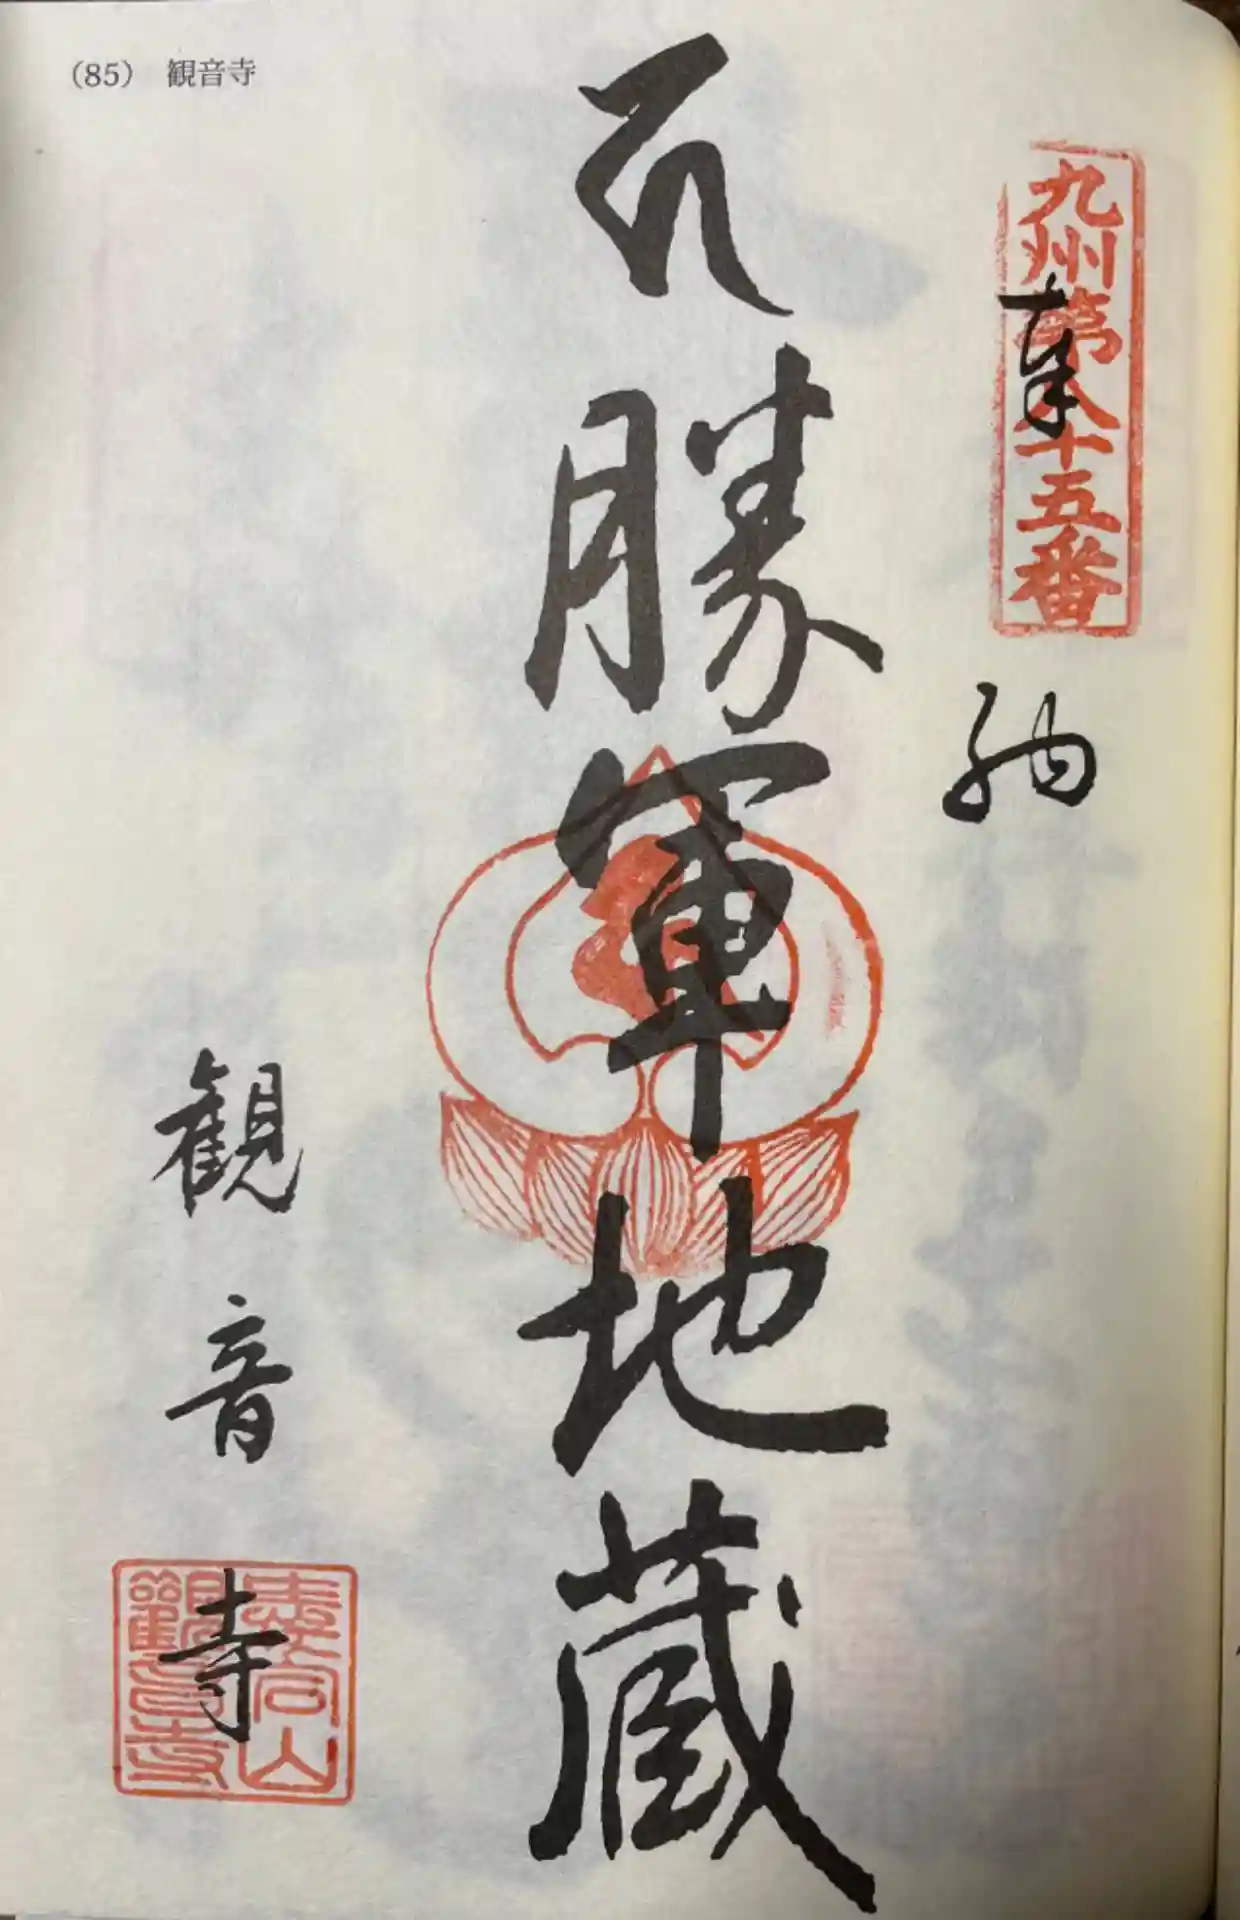 (85) 観音寺
九州第八十五番
奉納
勝軍地蔵
観音寺